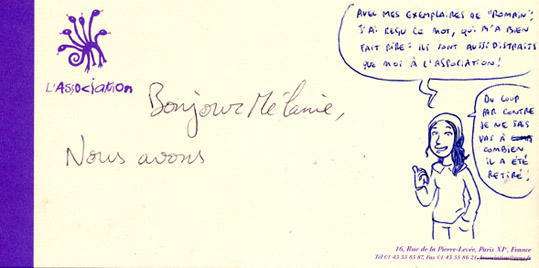 L'Association
Bonjour Mélanie,
Nous avons
AVEC MES EXEMPLAIRES DE "ROMAIN",
J'AI REÇU CE MOT, QUI M'A BIEN
FAIT RIRE : ILS SONT AUSSI DISTRAITS
QUE MOI À L'ASSOCIATION !
DU COUP
PAR CONTRE
JE NE SAIS
PAS À
COMBIEN
IL A ÉTÉ
RETIRÉ !
16, Rue de la Pierre-Levée, Paris XIe, France
Tél 01 43 55 85 87, Fax 01 43 55 86 21,